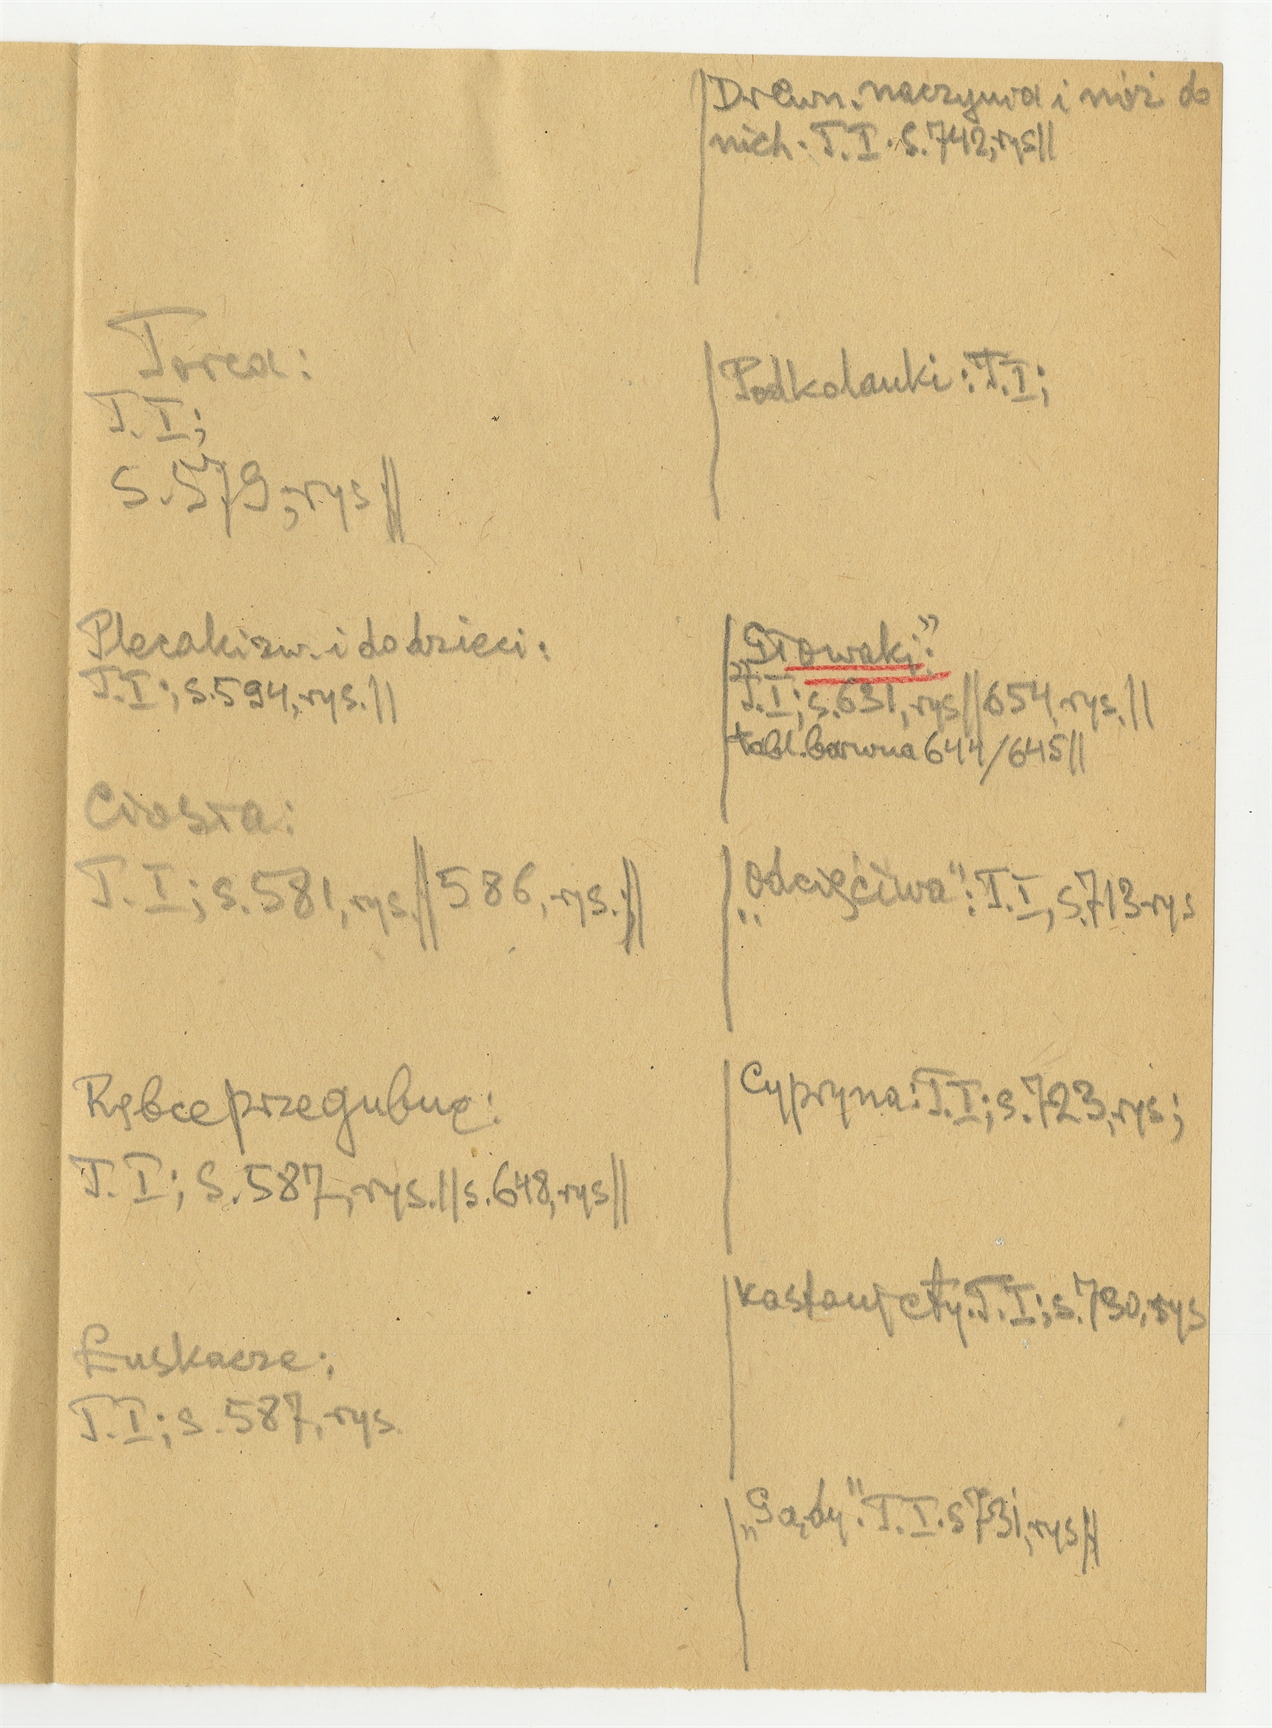 Drewn. naczynia i nóż do
nich. T.I. s.742, rys||
Torca:
T.I;
s.579, rys||
Plecaki zw. i do dzieci:
T.I; s.594, rys.||
Ciosła:
T.I; s.581, rys.||586, rys.||
Rębce przegubne:
T.I; s.587, rys.||s.648, rys||
Łuskacze:
T.I; s.587, rys.
Podkolanki: T.I;
„Głowaki”:
T.I; s.631, rys||654, rys.||
tabl. barwna 644/645||
„Odcięciwa”: T.I, s.713 rys
Cypryna: T.I; s.723, rys;
T.I; s.730, rys
„Sądy”. T.I. s731, rys||